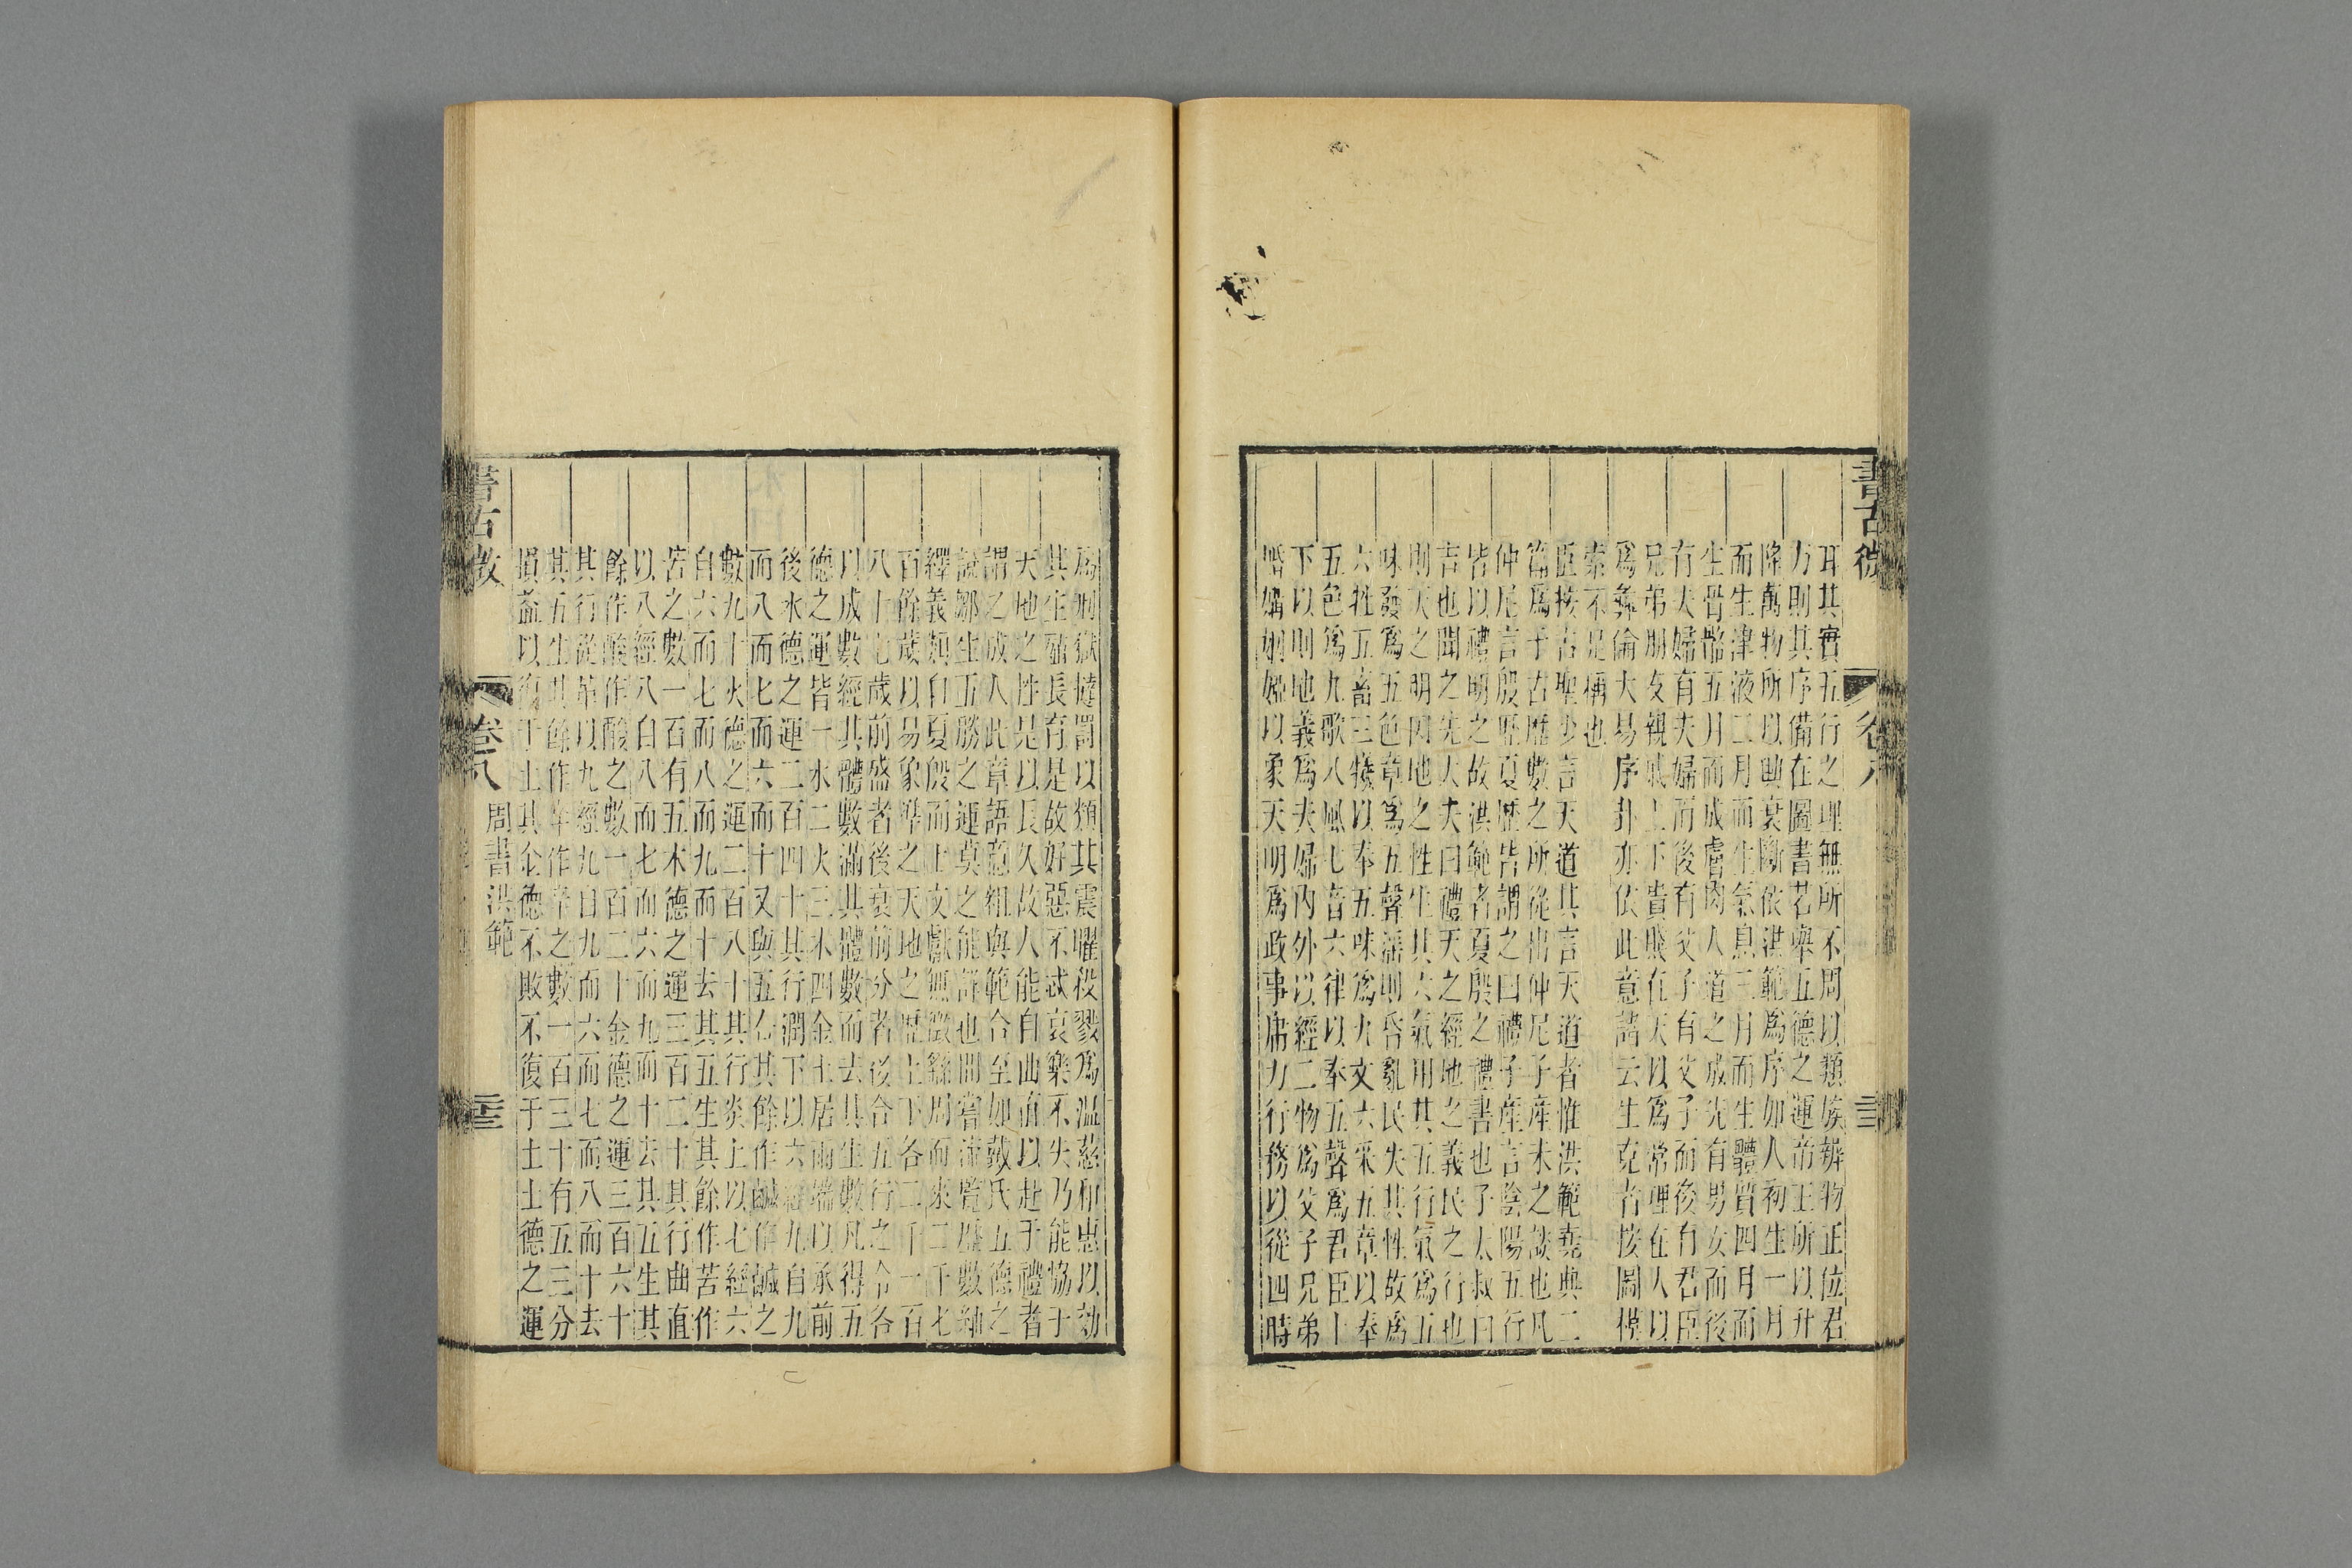 書古微
卷八
耳其實五行之理無所不周以類族辨物正位君
方則其序備在圖書若舉五德之運帝王所以升
降萬物所以助衰斷依洪範為序如人初生一月
而生津液二月而生氣息三月而生體質四月而
生骨骼五月而成膚肉人道之成先有男女而後
有夫婦有夫婦而後有父子有父子而後有君臣
兄弟朋友親戚上下貴賤在天以為常理在人以
為彝倫大易序卦亦依此意諸云生克者按圖模
索不足稱也
臣按古聖少言天道其言天道者惟洪範堯典二
篇為于古歷數之所從出仲尼子產末之談也凡
仲尼言殷歷夏歷皆謂之曰禮子產言陰陽五行
皆以禮明之故洪範者夏殷之禮書也子太叔曰
吉也聞之先大夫曰禮天之經地之義民之行也
則天之明因地之性生其六氣用其五行氣為五
味發為五色章為五聲淫則昏亂民失其性故為
六牲五畜三犧以奉五味為九文六采五章以奉
五色為九歌八風七音六律以奉五聲為君臣上
下以則地義為夫婦內外以經二物為父子兄弟
婚媾姻婭以象天明為政事庸力行務以從四時
為刑獄撻罰以類其震曜殺戮為溫慈和惠以効
其生殖長育是故好惡不忒哀樂不失乃能協于
天地之性是以長久故人能自曲直以赴于禮者
謂之成人此章語意粗與範合至如戴氏五德之
說鄒生五勝之運莫之能詳也間嘗流覽歷數紬
繹義類自夏殷而上文獻無徵繇周而來二千七
百餘歲以易象準之天地之歷上下各二千一百
八十七歲前盛者後衰前分者後合五行之合各
以成數經其體數滿其體數而去其生數凡得五
德之運皆一水二火三木四金土居兩端以承前
後水德之運二百四十其行潤下以六經九自九
而八而七而六而十又與五合其餘作鹹作鹹之
數九十火德之運二百八十其行炎上以七經六
自六而七而八而九而十去其五生其餘作苦作
苦之數一百有五木德之運三百二十其行曲直
以八經八自八而七而六而九而十去其五生其
餘作酸作酸之數一百二十金德之運三百六十
其行從革以九經九自九而六而七而八而十去
其五生其餘作辛作辛之數一百三十有五三分
損益以復于土其侖德不敗不復于土土德之運
書古微
卷八
周書洪範